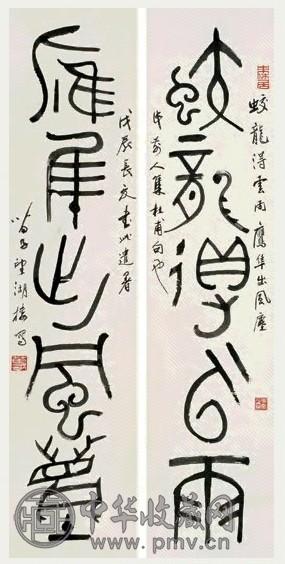 蛟龍得雲雨
蛟龍得雲雨 鷹隼出風塵
清前人集杜甫句也
鷹隼出風塵
戊辰長夏書此遣暑
望湖樓
中华收藏网
www.pmv.cn